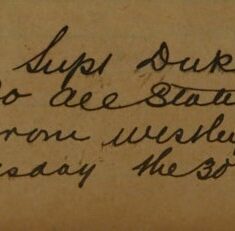 Supt Duk
o all Stati
rom westly
sday the 30